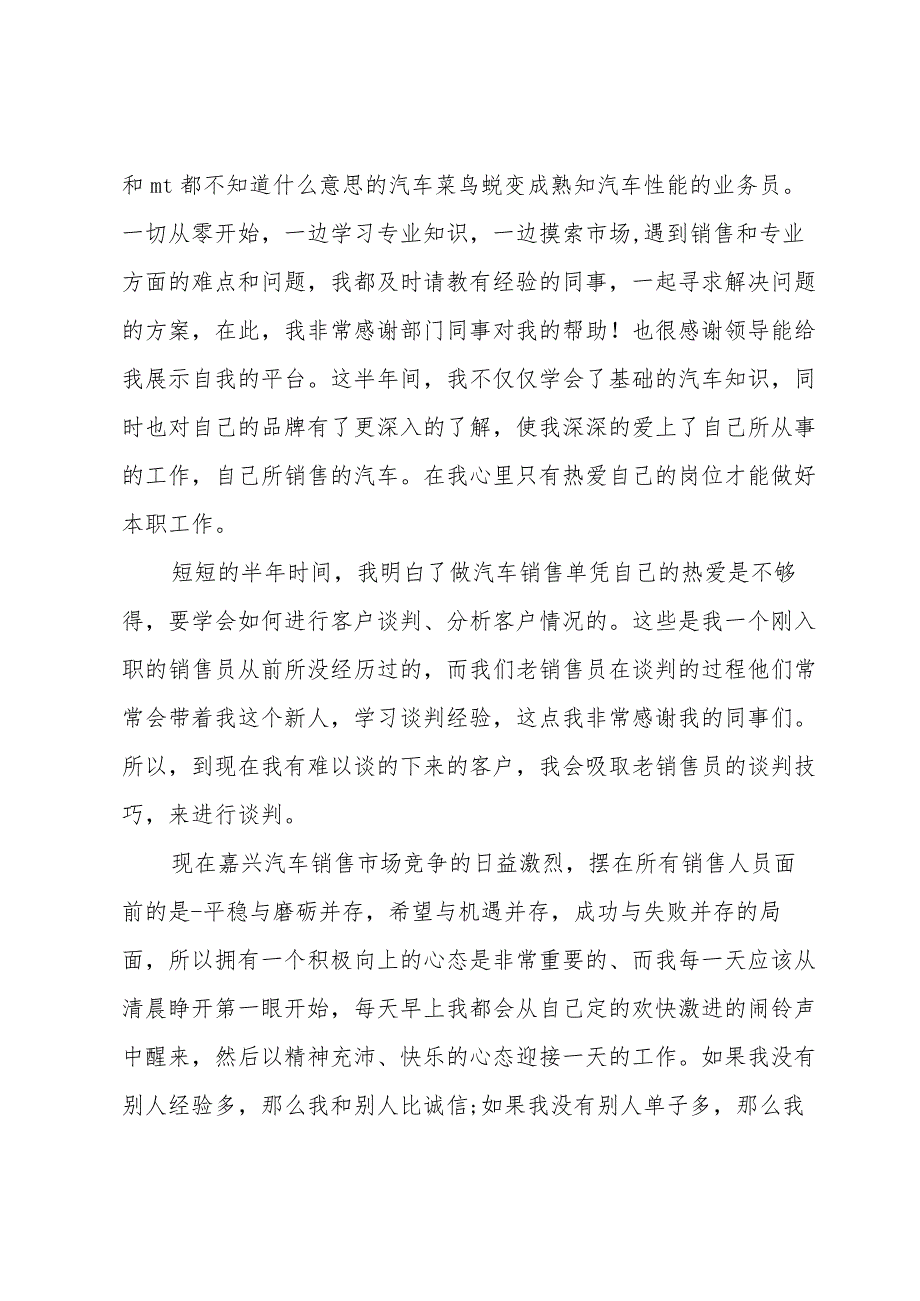 和mt都不知道什么意思的汽车菜鸟蜕变成熟知汽车性能的业务员。
一切从零开始，一边学习专业知识，一边摸索市场,遇到销售和专业
方面的难点和问题，我都及时请教有经验的同事，一起寻求解决问题
的方案，在此，我非常感谢部门同事对我的帮助！也很感谢领导能给
我展示自我的平台。这半年间，我不仅仅学会了基础的汽车知识，同
时也对自己的品牌有了更深入的了解，使我深深的爱上了自己所从事
的工作，自己所销售的汽车。在我心里只有热爱自己的岗位才能做好
本职工作。
短短的半年时间，我明白了做汽车销售单凭自己的热爱是不够
得，要学会如何进行客户谈判、分析客户情况的。这些是我一个刚入
职的销售员从前所没经历过的，而我们老销售员在谈判的过程他们常
常会带着我这个新人，学习谈判经验，这点我非常感谢我的同事们。
所以，到现在我有难以谈的下来的客户，我会吸取老销售员的谈判技
巧，来进行谈判。
现在嘉兴汽车销售市场竞争的日益激烈，摆在所有销售人员面
前的是-平稳与磨砺并存，希望与机遇并存，成功与失败并存的局
面，所以拥有一个积极向上的心态是非常重要的、而我每一天应该从
清晨睁开第一眼开始，每天早上我都会从自己定的欢快激进的闹铃声
中醒来，然后以精神充沛、快乐的心态迎接一天的工作。如果我没有
别人经验多，那么我和别人比诚信;如果我没有别人单子多，那么我